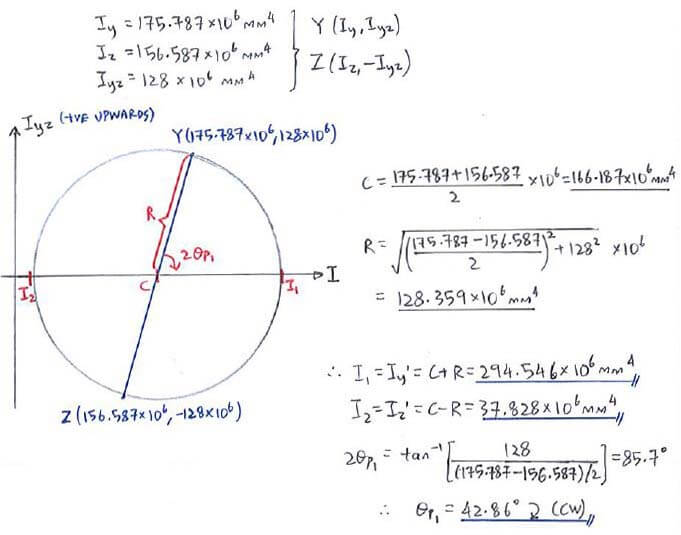 Iy = 175.787×10⁶ мм⁴
Iz = 156.587×10⁶ мм⁴
Iyz = 128 × 10⁶ мм⁴
Y (Iy, Iyz)
Z (Iz, -Iyz)
Iyz (+IVE UPWARDS)
Y(175.787×10⁶, 128×10⁶)
R
2θp₁
C
I₂
I₁
I
Z (156.587×10⁶, -128×10⁶)
C = (175.787+156.587)/2 ×10⁶ = 166.187×10⁶ мм⁴
R = √(((175.787-156.587)/2)² + 128²) ×10⁶
= 128.359×10⁶ мм⁴
∴ I₁ = Iy' = C+R = 294.546×10⁶ мм⁴
I₂ = Iz' = C-R = 37.828×10⁶ мм⁴
2θp₁ = tan⁻¹ [128/((175.787-156.587)/2)] = 85.7°
∴ θp₁ = 42.86° ⤵ (CW)